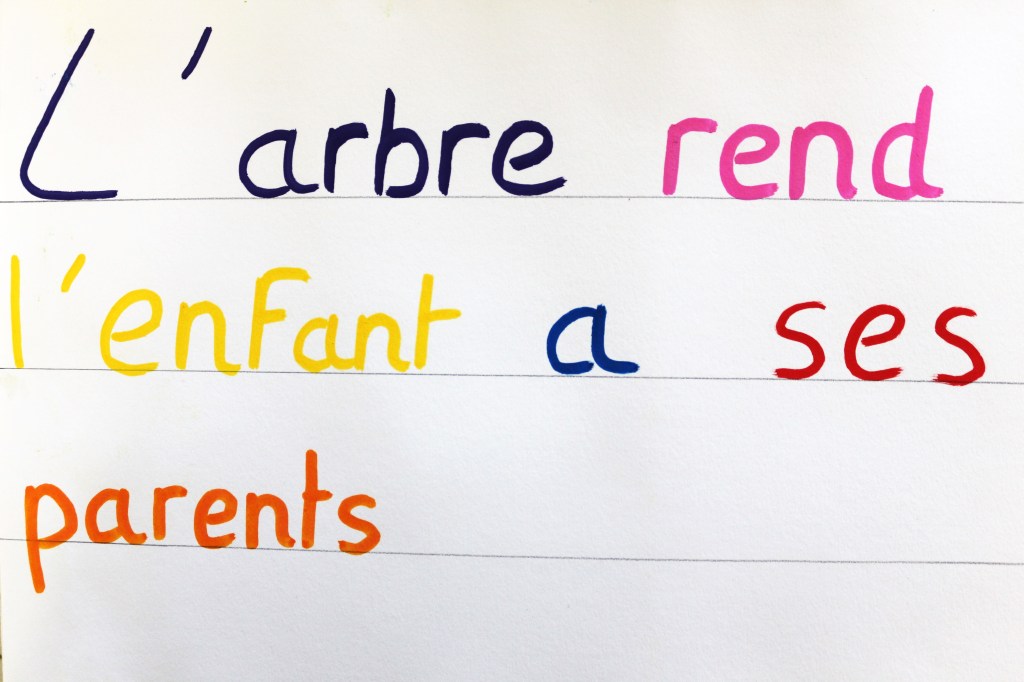 L'arbre rend
l'enfant a ses
parents